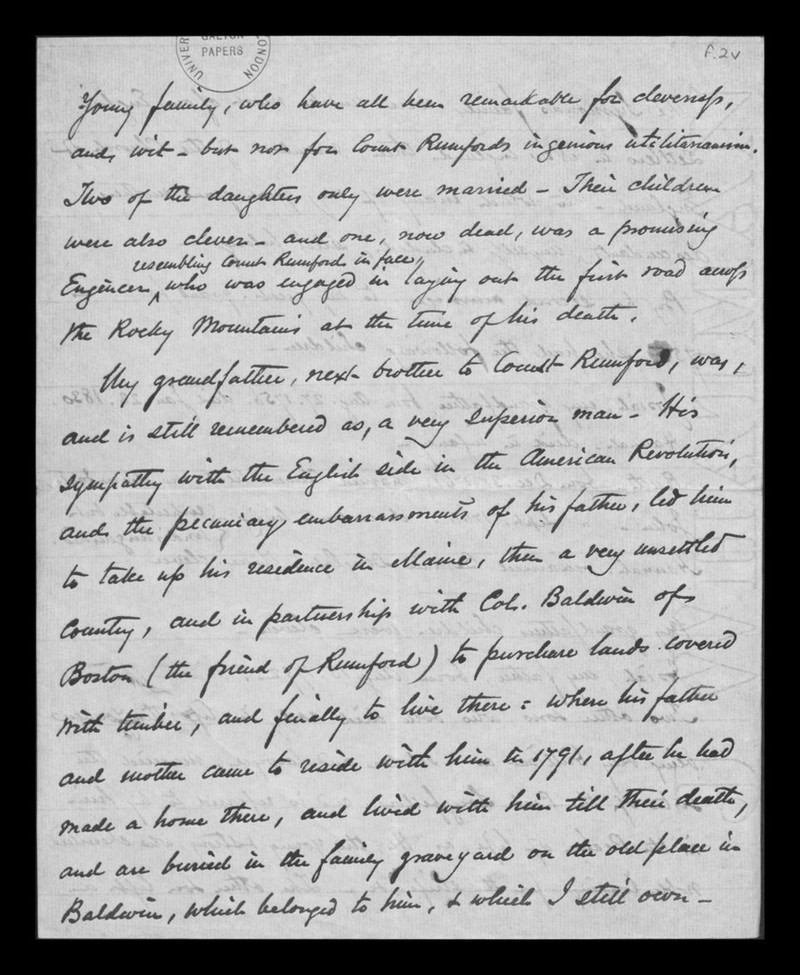 UNIVER
GALTON
PAPERS
LONDON
f.2v
Young family, who have all been remarkable for cleverness,
and wit - but not for Count Rumford's ingenious utilitarianism.
Two of the daughters only were married - Their children
were also clever - and one, now dead, was a promising
resembling Count Rumford in face,
Engineer ^ who was engaged in laying out the first road across
the Rocky Mountains at the time of his death.
My grandfather, next brother to Count Rumford, was,
and is still remembered as, a very superior man - His
sympathy with the English side in the American Revolution,
and the pecuniary embarrassments of his father, led him
to take up his residence in Maine, then a very unsettled
Country, and in partnership with Col. Baldwin of
Boston (the friend of Rumford) to purchase lands covered
with timber, and finally to live there: where his father
and mother came to reside with him in 1791, after he had
made a home there, and lived with him till their death,
and are buried in the family graveyard on the old place in
Baldwin, which belonged to him, & which I still own -